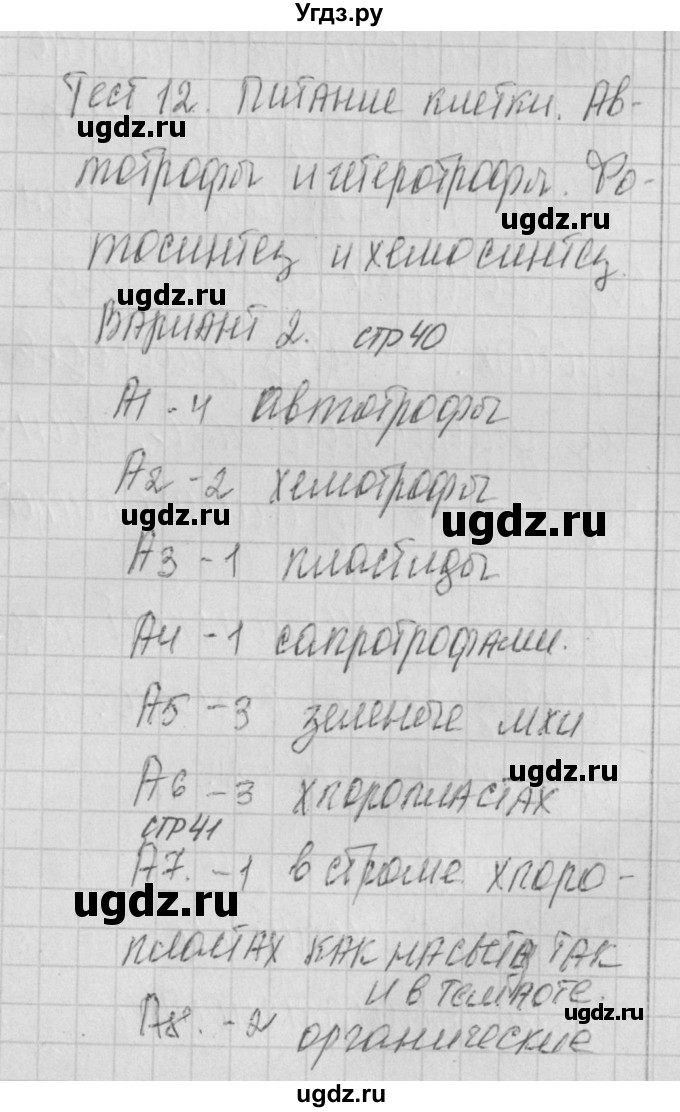 Угдз.ру
Тест 12. Питание клетки. Ав-
ugdz.ru
тотрофы и гетеротрофы. Фо-
ugdz.ru
тосинтез и хемосинтез.
ugdz.ru
Вариант 2. стр 40
А1 - 4 автотрофы
А2 - 2 хемотрофы
ugdz.ru
ugdz.ru
А3 - 1 пластиды
А4 - 1 сапротрофами.
А5 - 3 зеленые мхи
ugdz.ru
А6 - 3 хлоропластах
стр 41
А7. - 1 в строме хлоро-
ugdz.ru
пластах как на свету так
и в темноте.
ugdz.ru
А8. - 2 органические
ugdz.ru